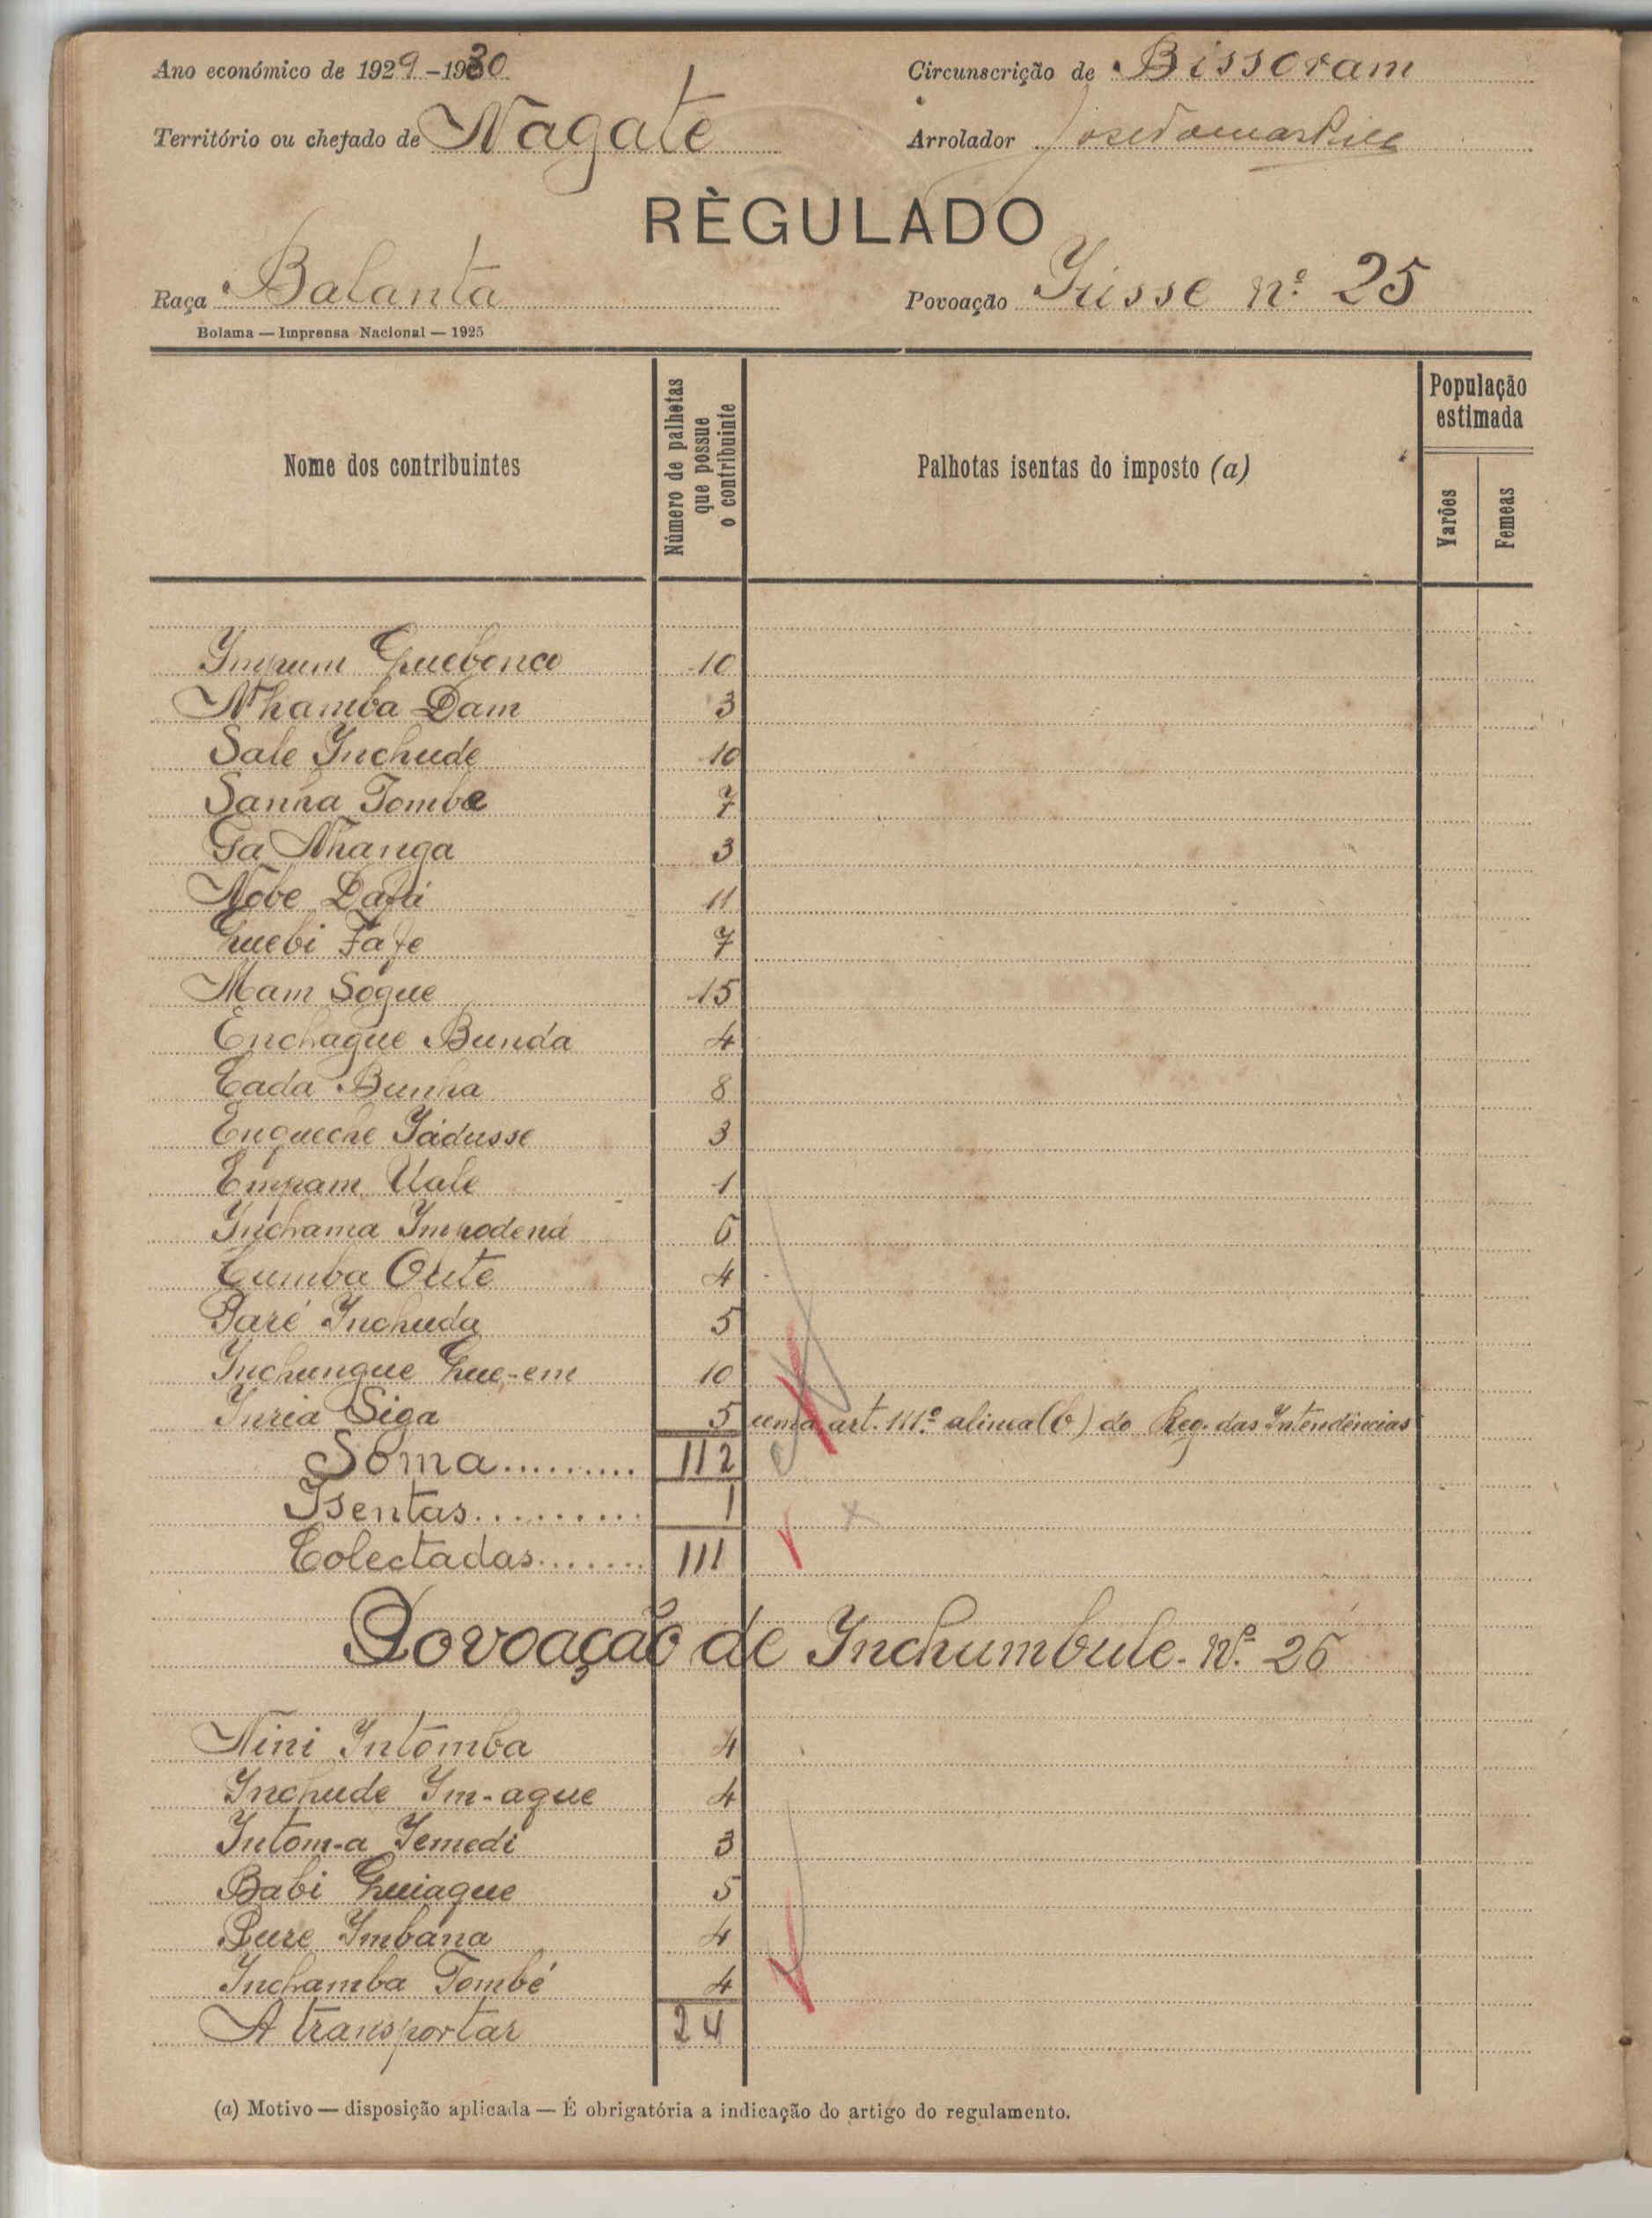 Ano económico de 1929-1930
Circunscrição de Bissoram
Território ou chefado de Nagate
Arrolador
RÈGULADO
Raça Balanta
Povoação Iusse nº 25
Bolama — Imprensa Nacional — 1925
Nome dos contribuintes
Número de palhotas que possue o contribuinte
Palhotas isentas do imposto (a)
População estimada
Varões
Femeas
Impum 10
Nhamba Dam 3
Sale Inchude 10
Sanha Tombe 7
Ga Nhanga 3
Nobe Dafá 11
Guebi Fafe 7
Mam Sogue 15
Enchague Bunda 4
Cada Bunha 8
Enqueche Iádusse 3
Empam Uale 1
Inchama 6
Cumba Oute 4
Paré Inchuda 5
Inchungue Gue-em 10
Inria Siga 5 uma, art. 111.º alinea (b) do Reg. das Intendências
Sôma......... 112
Isentas.......... 1
Colectadas....... 111
Povoação de Inchumbule. nº 26
Nini Intomba 4
Inchude Im-ague 4
Intom-a Iemedi 3
Babi Guiague 5
Pure Imbana 4
Inchamba Tombé 4
A transportar 24
(a) Motivo — disposição aplicada — É obrigatória a indicação do artigo do regulamento.